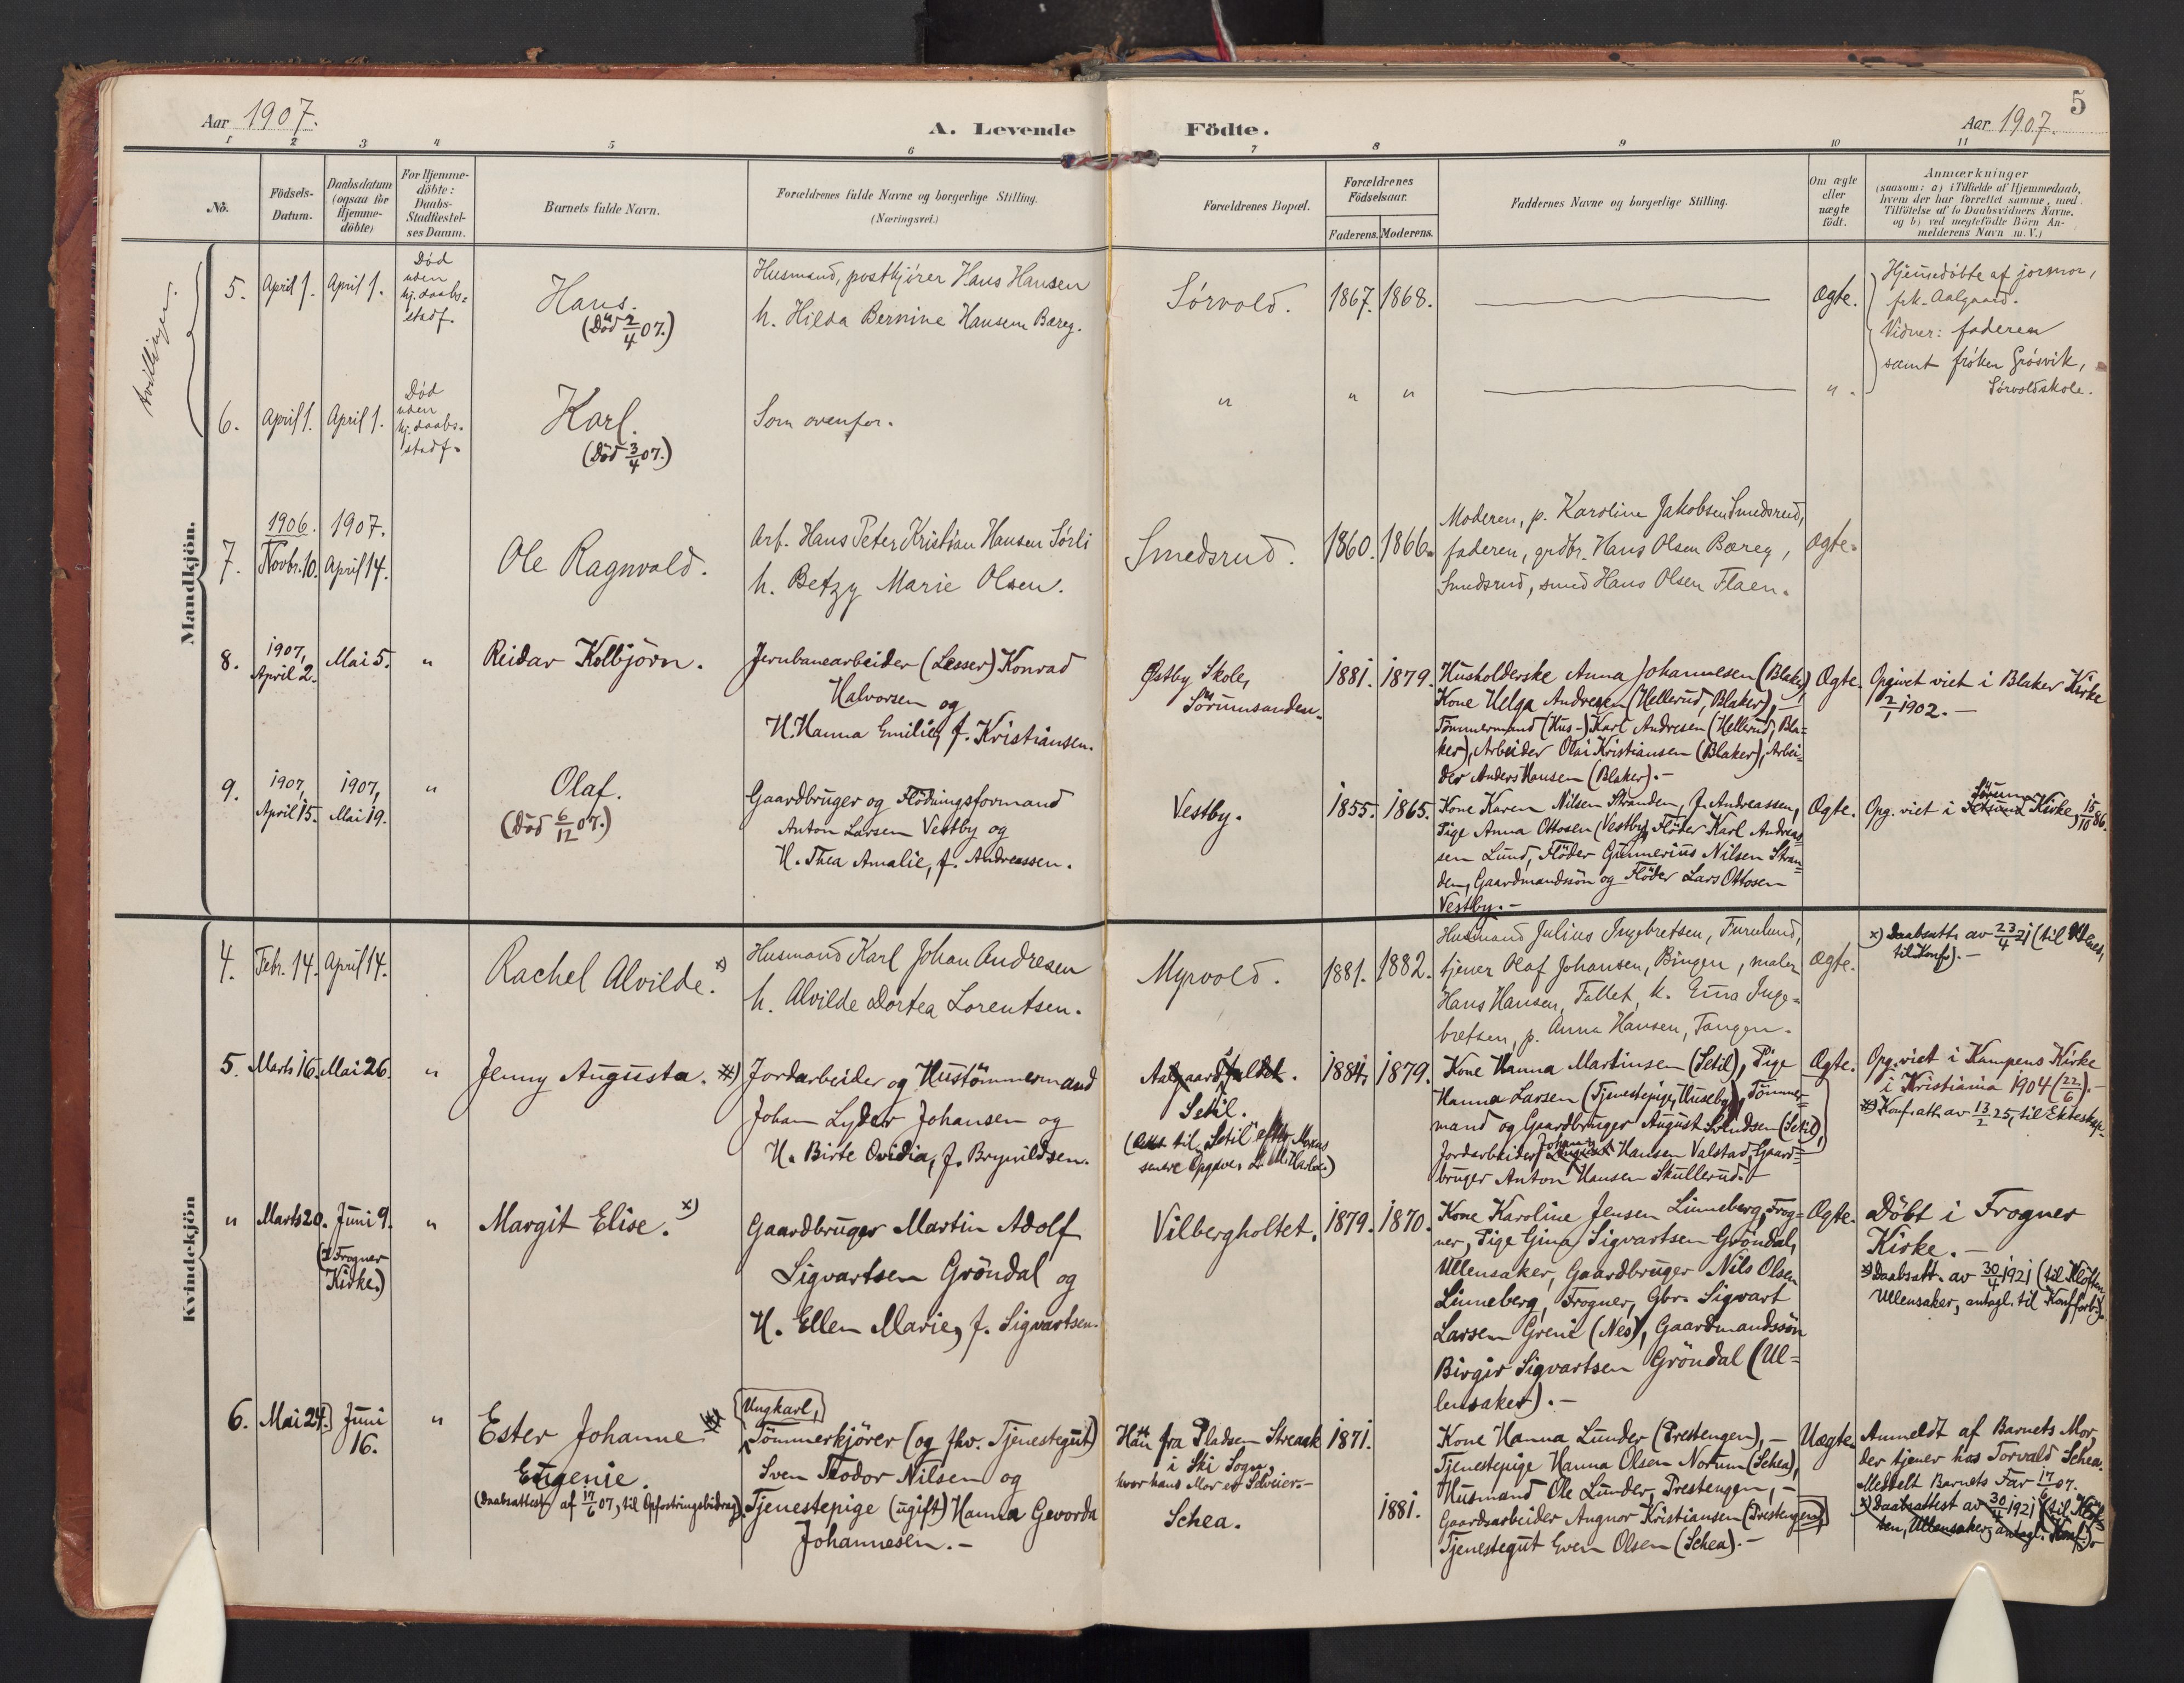 Aar 1907.
A. Levende Födte.
5
Aar 1907.
1 2 3 4 5 6 7 8 9 10 11
No.
Födsels-
Datum.
Daabsdatum
(ogsaa for
Hjemme-
döbte)
For Hjemme-
döbte:
Daabs-
Stadfæstel-
ses Datum.
Barnets fulde Navn.
Forældrenes fulde Navne og borgerlige Stilling.
(Næringsvei.)
Forældrenes Bopæl.
Forældrenes
Födselsaar.
Faderens. Moderens.
Faddernes Navne og borgerlige Stilling.
Om ægte
eller
uægte
födt.
Anmærkninger
(saasom: a) i Tilfælde af Hjemmedaab,
hvem der har forrettet samme, med
Tilföielse af to Daabsvidners Navne,
og b) ved uægtefödte Börn An-
melderens Navn m. V.)
Mandkjön.
tvillinger.
5. April 1. April 1.
Död
uden
hj. daabs-
stadf.
Hans.
(Död 2/4 07.)
Husmand, postkjörer Hans Hansen
h. Hilda Bernine Hansen Bæreg.
Sörvold. 1867. 1868.
Ægte.
Hjemmedöbte af jormor,
frk. Aalgaard.
Vidner: faderen
samt fröken Grösvik,
Sörvoldskole.
6. April 1. April 1.
Död
uden
hj. daabs-
stadf.
Karl.
(Död 3/4 07.)
Som ovenfor.
" " " ".
7.
1906.
Novbr. 10.
1907.
April 14.
Ole Ragnvald.
Arb. Hans Peter Kristian Hansen Sörli
h. Betzy Marie Olsen.
Smedsrud. 1860. 1866.
Moderen, p. Karoline Jakobsen Smedsrud,
faderen, grdbr. Hans Olsen Bæreg,
Smedsrud, smed Hans Olsen Flaen.
Ægte.
8.
1907,
April 2.
Mai 5. "
Reidar Kolbjörn.
Jernbanearbeider (Lesser) Konrad
Halvorsen og
H. Hanna Emilie, f. Kristiansen.
Østby Skole,
Sörumsanden.
1881. 1879.
Husholderske Anna Johannesen (Blaker),
Kone Helga Andresen (Hellerud, Blaker), -
Tömmermand (Hus-) Karl Andresen (Hellerud, Bla=
ker), Arbeider Olai Kristiansen (Blaker), Arbei=
der Anders Hansen (Blaker). -
Ægte.
Opgivet viet i Blaker Kirke
2/1 1902. -
9.
1907,
April 15.
1907,
Mai 19.
"
Olaf.
(Död 6/12 07.)
Gaardbruger og Flödningsformand
Anton Larsen Vestby og
H. Thea Amalie, f. Andreassen.
Vestby. 1855. 1865.
Kone Karen Nilsen Stranden, f. Andreassen,
Pige Anna Ottosen (Vestby), Flöder Karl Andreas
sen Lund, Flöder Gunnerius Nilsen Stran=
den, Gaardmandssön og Flöder Lars Ottosen
Vestby. -
Ægte.
Opg. viet i Fetsund Sörum Kirke, 15/10 86.
Kvindekjön
4. Febr. 14. April 14.
Rachel Alvilde. x)
Husmand Karl Johan Andresen
h. Alvilde Dortea Lorentsen.
Myrvold. 1881. 1882.
Husmand Julius Ingebretsen, Furulund,
tjener Olaf Johansen, Bingen, maler
Hans Hansen, Fallet, k. Ema Inge=
bretsen, p. Anna Hansen, Tangen.
Ægte.
x) Daabsatt. av 23/4 21 (til
til Konf.). -
5. Marts 16. Mai 26. "
Jenny Augusta. #)
Jordarbeider og Hustömmermand
Johan Lyder Johansen og
H. Birte Ovidia, f. Brynildsen.
Aalgaardfaldet.
Setil.
til "Setil" efter
senere Opgave,
1884, 1879.
Kone Hanna Martinsen (Setil), Pige
Hanna Larsen (Tjenestepige, Huseby), Tömmer=
mand og Gaardbruger August Svendsen (Setil),
Jordarbeider Johan Hansen Valstad, Gaard=
bruger Anton Hansen Skullerud. -
Ægte.
Opg. viet i Kampens Kirke
i Kristiania 1904 (22/6). -
#) Konf.att. av 13/2 25, til Ekteskap.
" Marts 20. Juni 9. "
(I Frogner
Kirke.)
Margit Elise. x)
Gaardbruger Martin Adolf
Sigvartsen Gröndal og
H. Ellen Marie, f. Sigvartsen.
Vilbergholtet. 1879. 1870.
Kone Karoline Jensen Linneberg, Frog=
ner, Pige Gina Sigvartsen Gröndal,
Ullensaker, Gaardbruger Nils Olsen
Linneberg, Frogner, Gbr. Sigvart
Larsen Greni (Nes), Gaardmandssön
Birger Sigvartsen Gröndal (Ul=
lensaker). -
Ægte.
Döbt i Frogner
Kirke. -
x) Daabsatt. av 30/4 1921 (til Klöften,
Ullensaker, antagl. til Konf.forb.).
6. Mai 24. Juni
16.
"
Ester Johanne
Eugenie.
(Daabsattest af 17/6 07, til Opfostringsbidrag).
Ungkarl,
Tömmerkjörer (og fhv. Tjenestegut)
Sven Teodor Nilsen og
Tjenestepige (ugift) Hanna Gevorda
Johannesen. -
Han fra Pladsen Streaak
i Ski Sogn,
hvor hans Mor er Selveier. -
Schea.
1871.
1881.
Kone Hanna Lunder (Prestengen), -
Tjenestepige Hanna Olsen Norum (Schea),
Husmand Ole Lunder, Prestengen, -
Gaardsarbeider Angnor Kristiansen (Prestengen),
Tjenestegut Even Olsen (Schea). -
Uægte.
Anmeldt af Barnets Mor,
der tjener hos Torvald Schea.
Meddelt Barnets Far 17/6 07.
x) Daabsattest av 30/4 1921 (til Klöf=
ten, Ullensaker, antagl. Konf.).